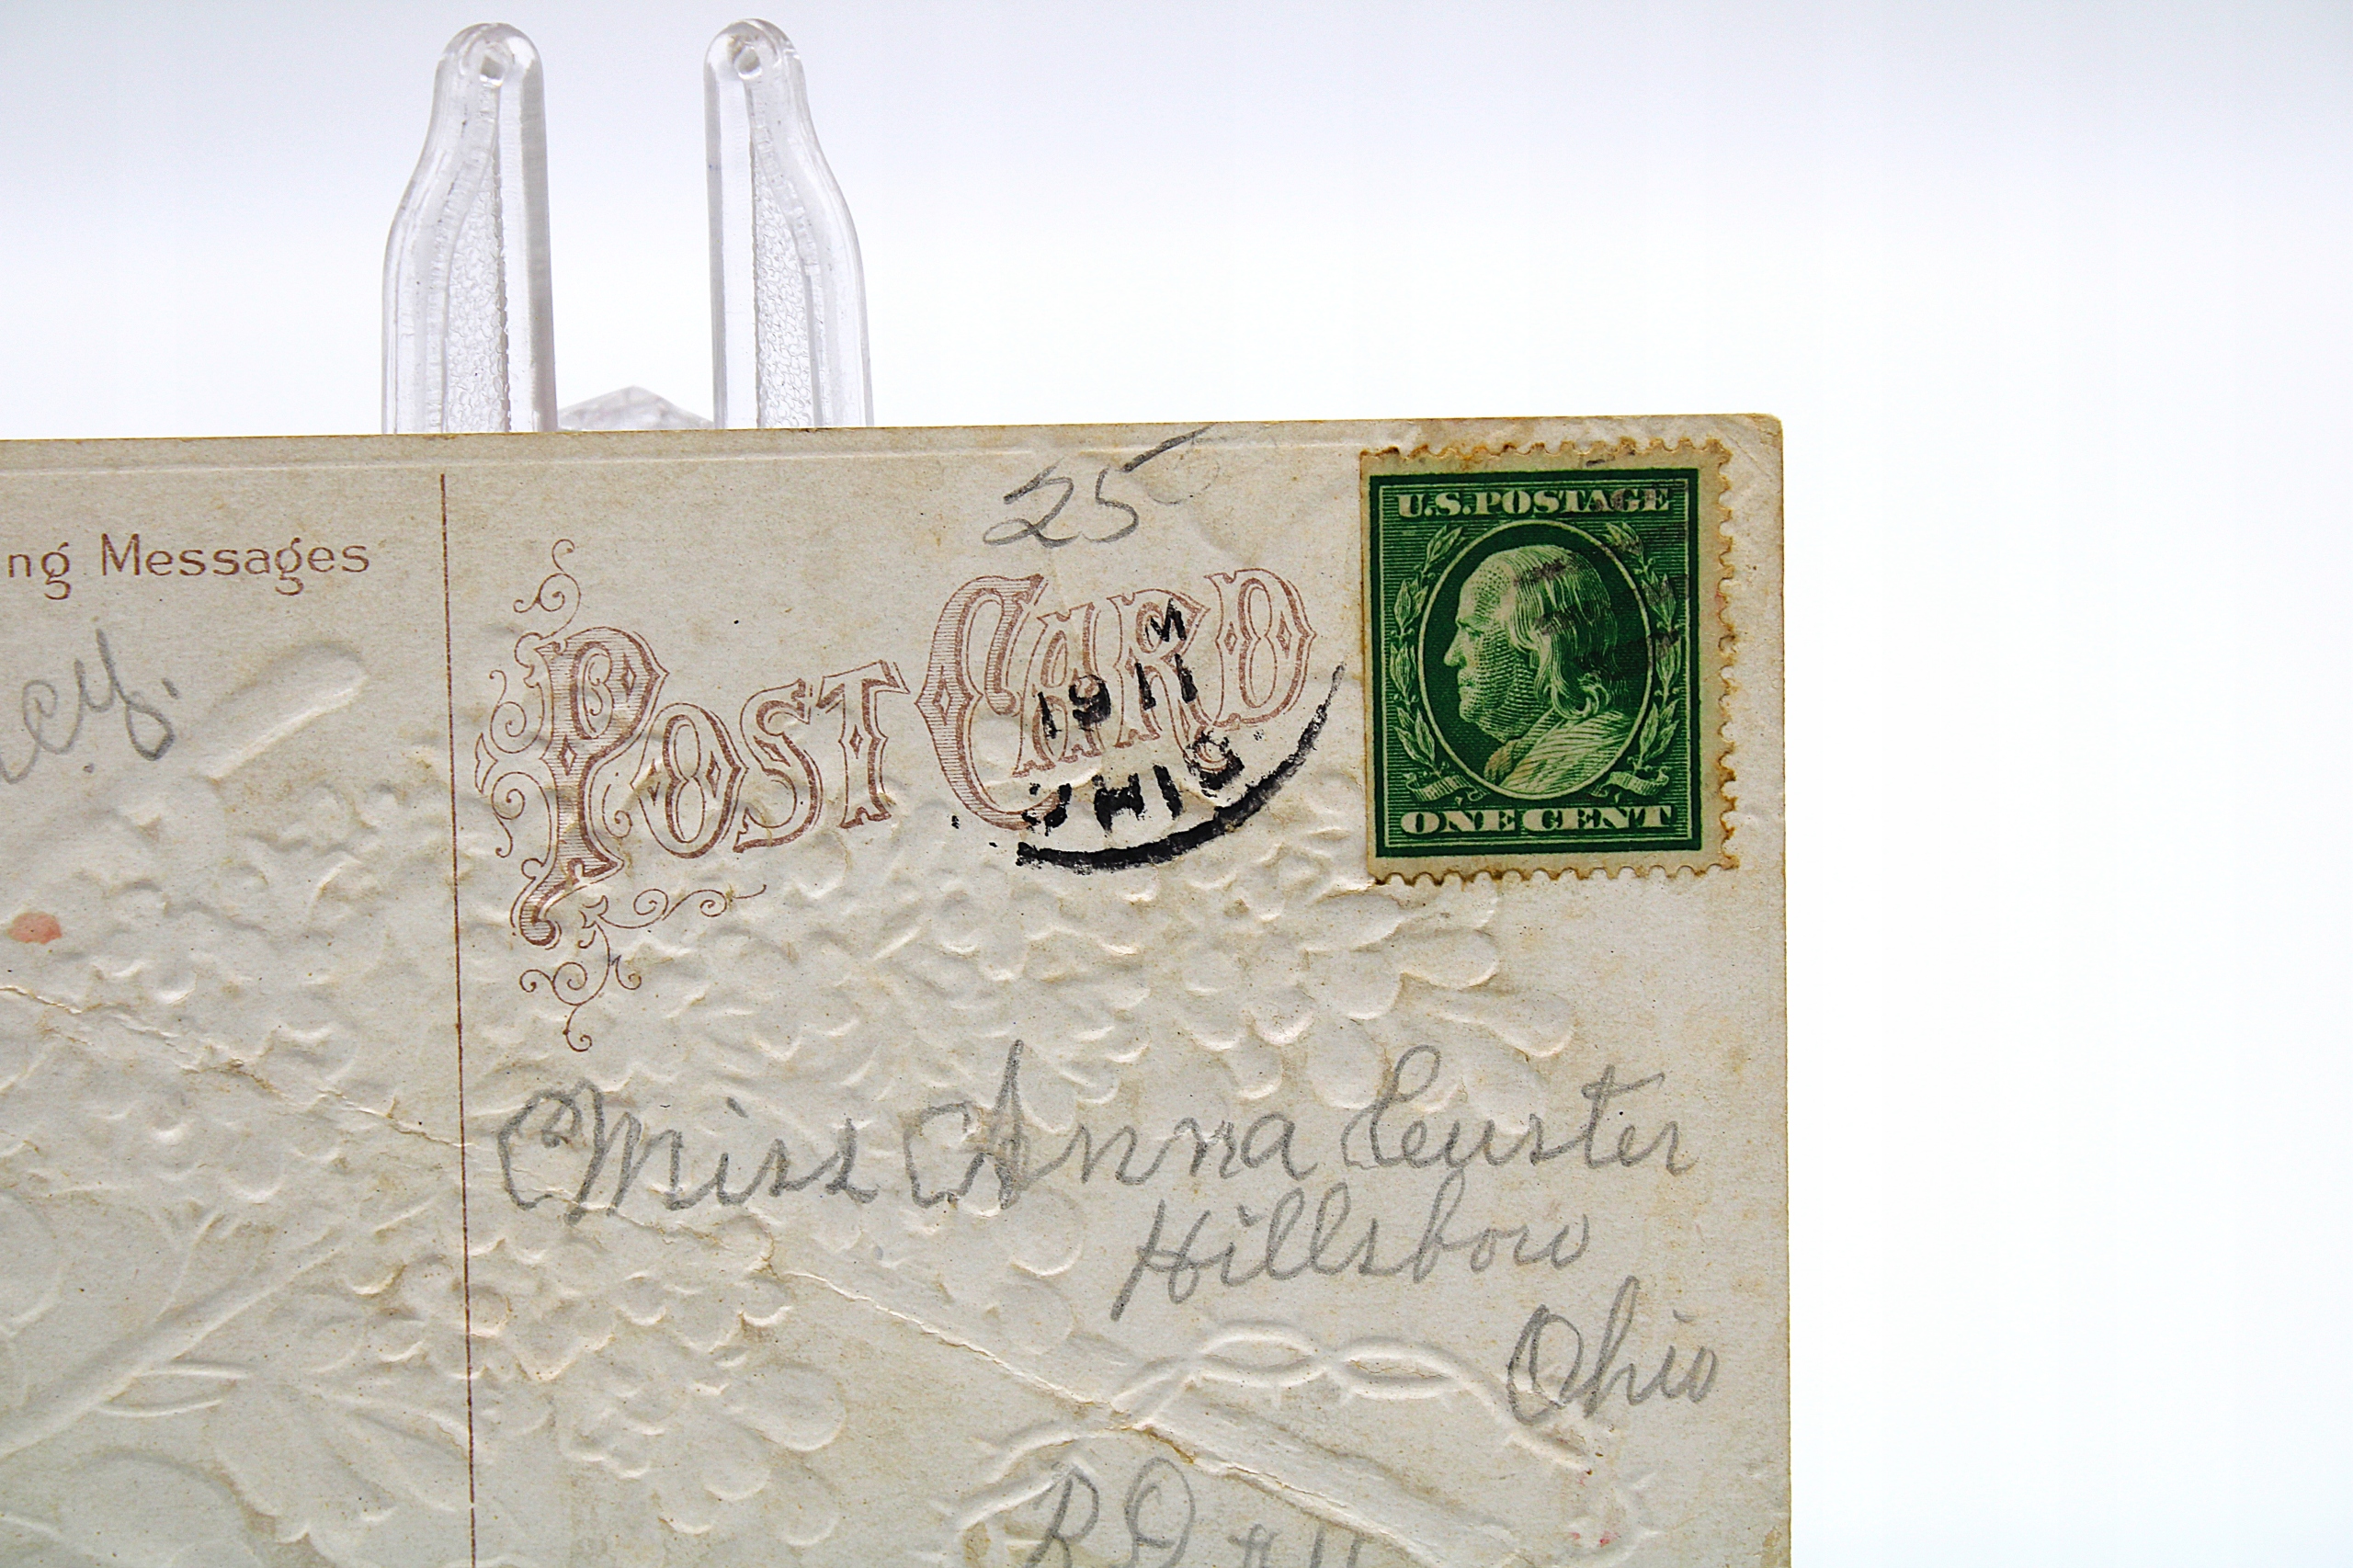 ng Messages
cy.
25
POST CARD
M
1911
OHIO
U.S. POSTAGE
ONE CENT
Miss Anna Custer
Hillsboro
Ohio
RD #11